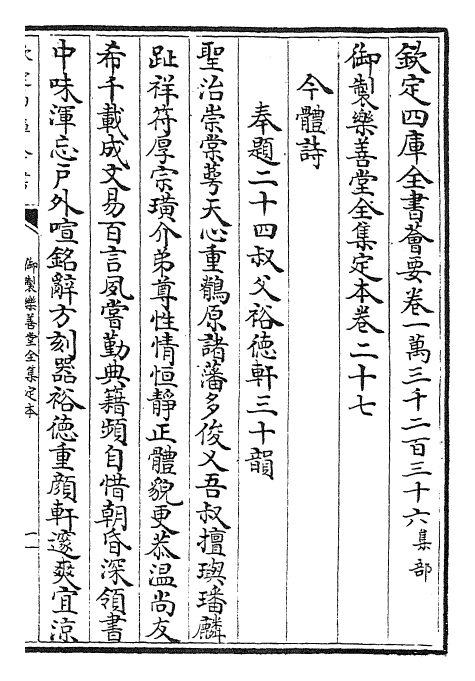 欽定四庫全書薈要卷一萬三千二百三十六集部
御製樂善堂全集定本卷二十七
今體詩
奉題二十四叔父裕徳軒三十韻
聖治崇棠萼天心重鶺原諸藩多俊乂吾叔擅璵璠麟
趾祥符厚宗璜介弟尊性情恒静正體貌更恭温尚友
希千載成文易百言夙嘗勤典籍頻自惜朝昏深領書
中味渾忘戸外喧銘辭方刻器裕徳重顔軒邃爽宜涼
御製樂善堂全集定本